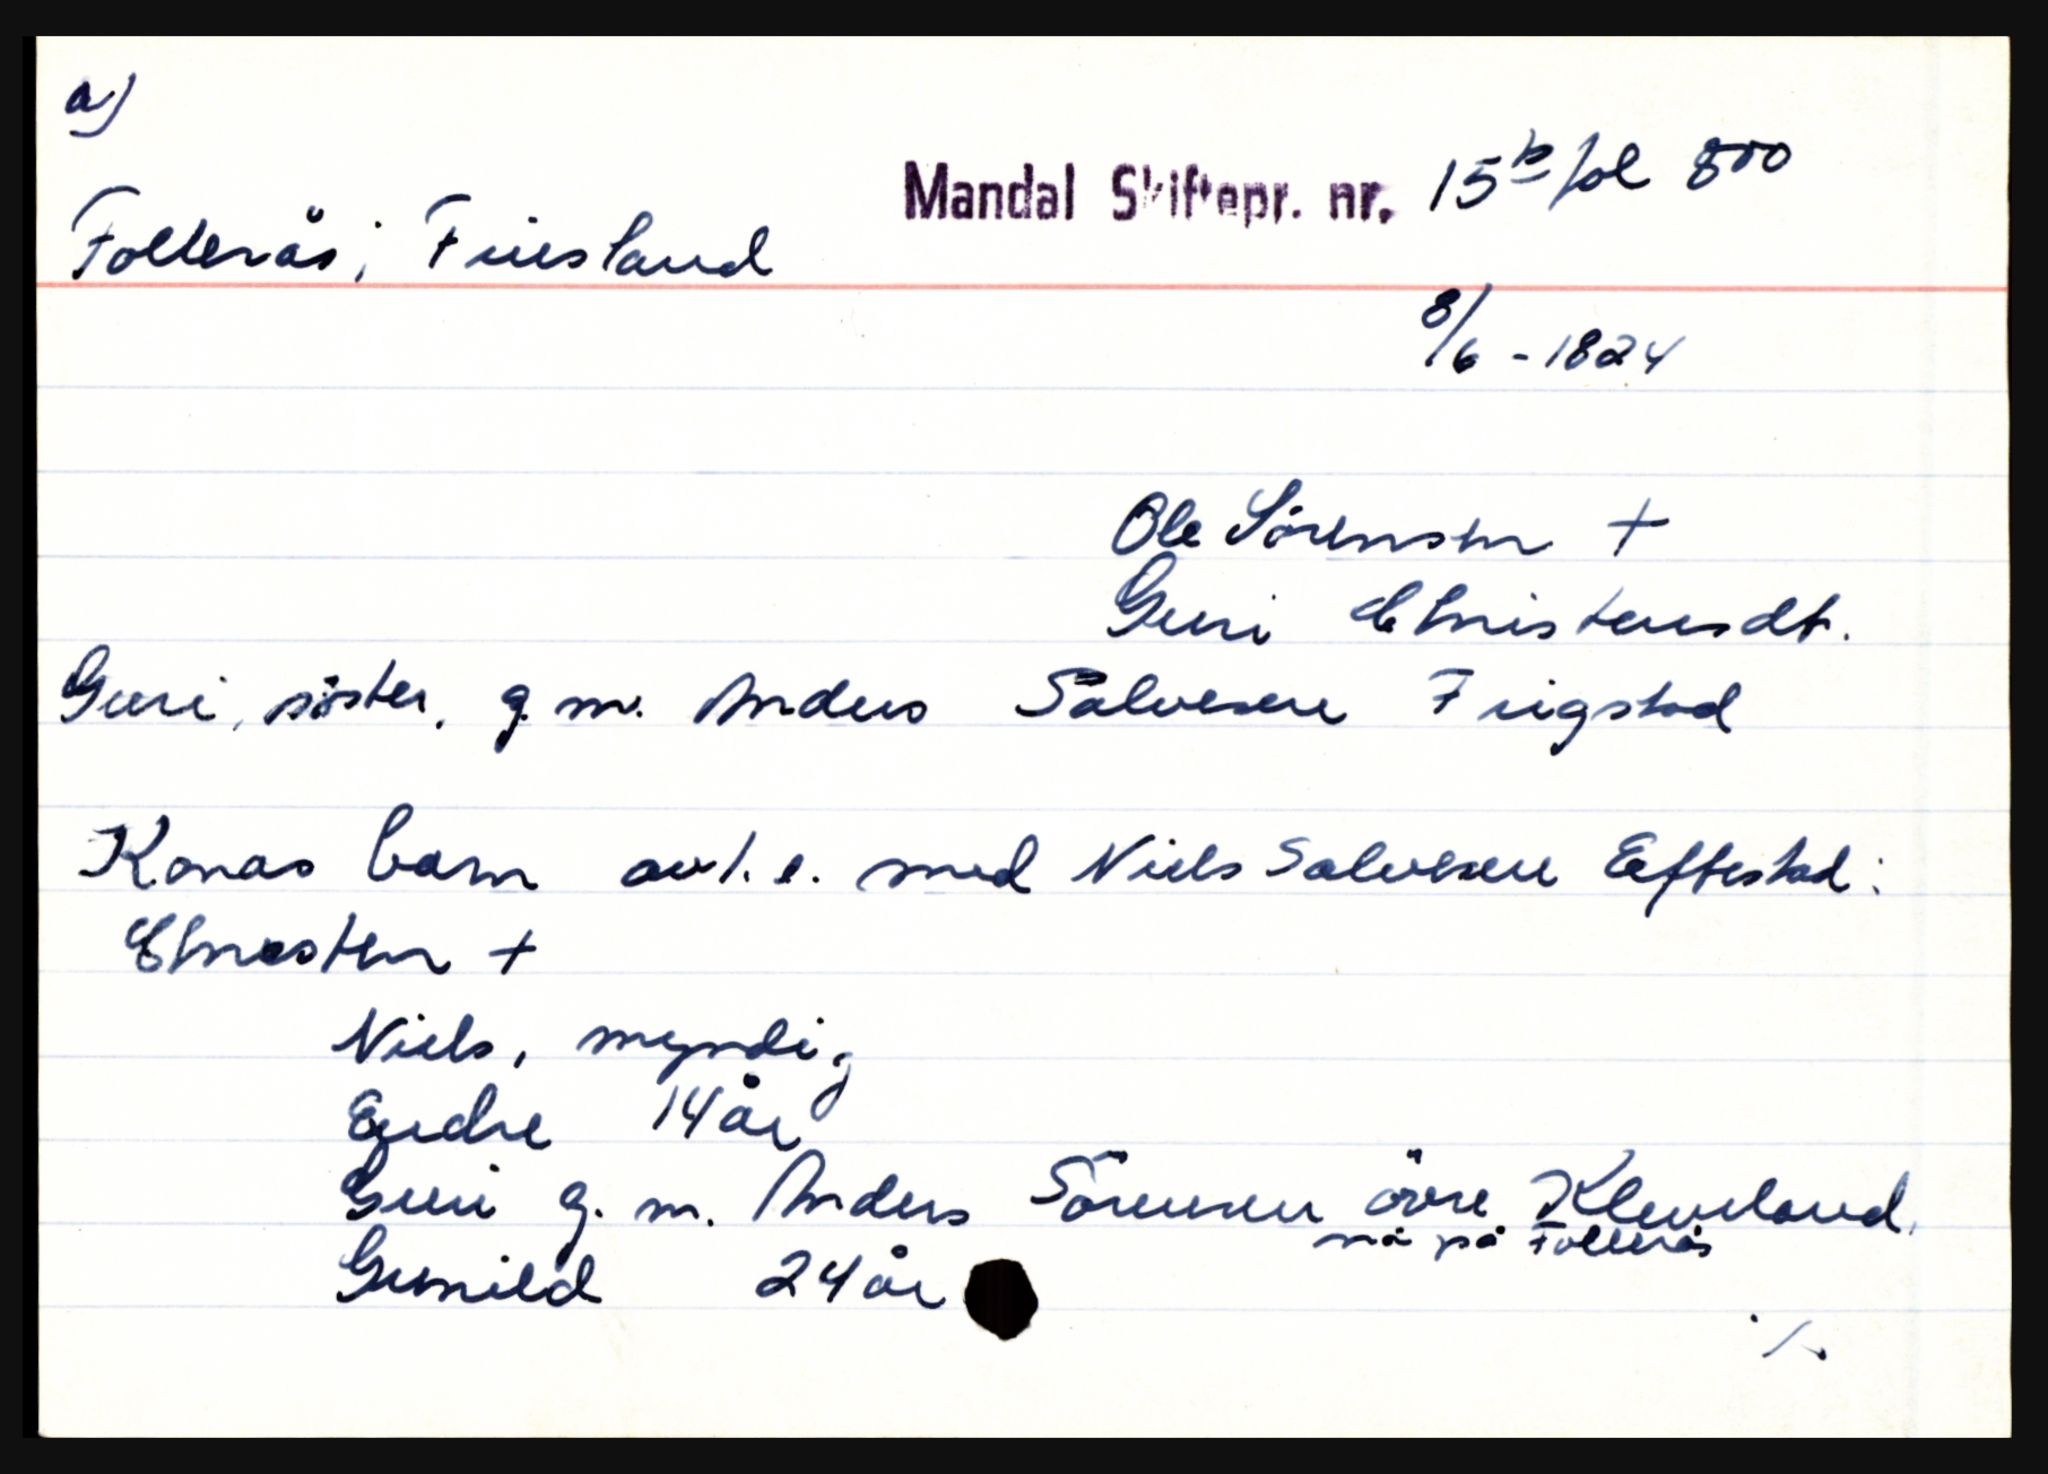 a)
Mandal Skiftepr. nr. 15b fol 800
Follerås, Finsland
8/6 - 1824
Ole Sörensen +
Guri Christensdt.
Guri, söster, g. m. Anders Salvesen Frigstad
Konas barn av 1. e. med Niels Salvesen Eftestad:
Christen +
Niels, myndig
Endre 14 år
Guri g. m. Anders Sörensen övre Kleveland,
nå på Follerås
Gunild 24 år
./.